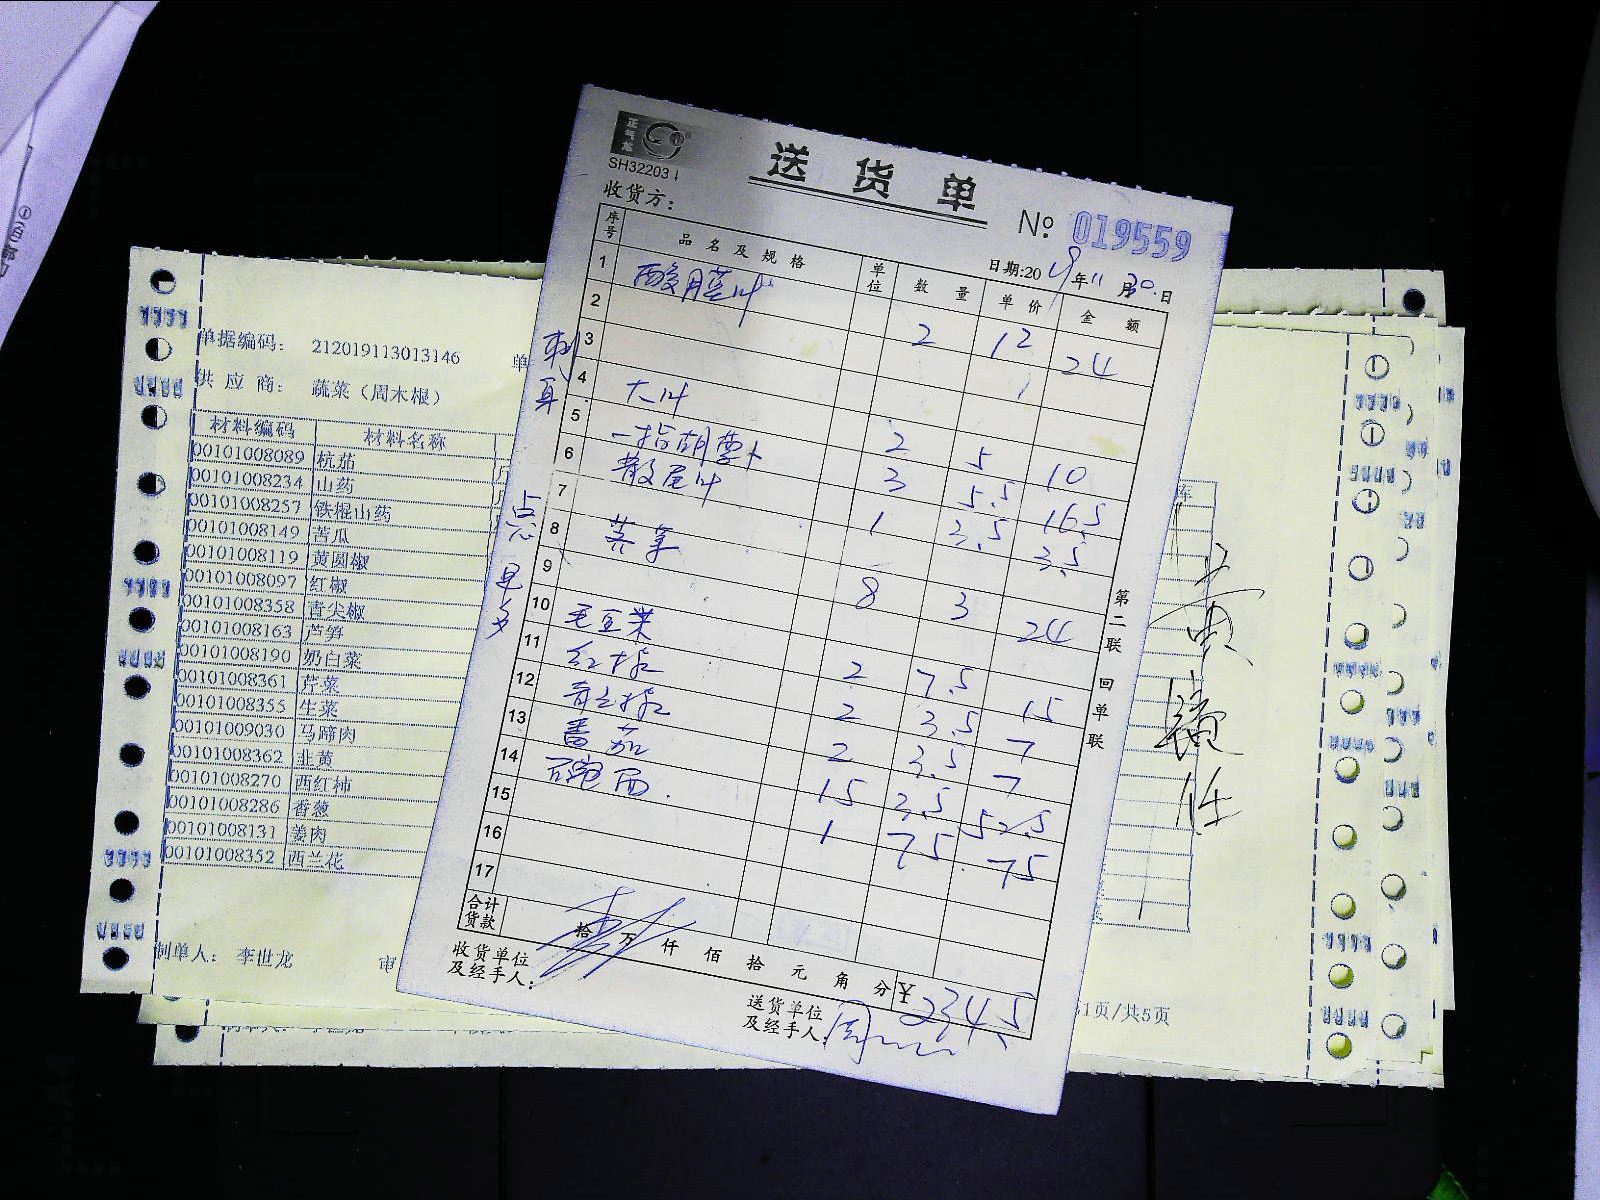 正气龙
SH32203
送货单
收货方：
№ 019559
日期:2019年11月30日
序号 品名及规格 单位 数量 单价 金额
1 酸膜叶 2 12 24
2
3
4 大叶 2 5 10
5 一指胡萝卜 3 5.5 16.5
6 散尾叶 1 3.5 3.5
7
8 荠菜 8 3 24
9
10 毛豆米 2 7.5 15
11 红椒 2 3.5 7
12 青尖椒 2 3.5 7
13 番茄 15 3.5 52.5
14 1 75 75
15
16
17
合计货款 拾万仟佰拾元角分 ¥ 234.5
收货单位及经手人：
送货单位及经手人： 周
第二联 回单联
刺身
点心
单据编码： 212019113013146 单
供应商： 蔬菜（周木根）
材料编码 材料名称
00101008089 杭茄
00101008234 山药
00101008257 铁棍山药
00101008149 苦瓜
00101008119 黄圆椒
00101008097 红椒
00101008358 青尖椒
00101008163 芦笋
00101008190 奶白菜
00101008361 芹菜
00101008355 生菜
00101009030 马蹄肉
00101008362 韭黄
00101008270 西红柿
00101008286 香葱
00101008131 姜肉
00101008352 西兰花
制单人： 李世龙 审
库
1页/共5页